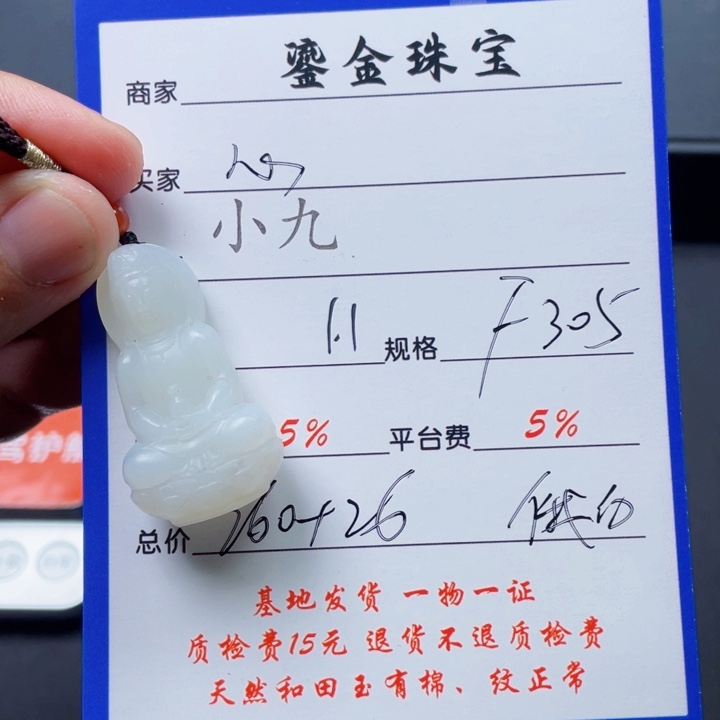 鎏金珠宝
商家
买家
小九
1.1 规格 F305
5% 平台费 5%
总价 260+26
基地发货 一物一证
质检费15元 退货不退质检费
天然和田玉有棉、纹正常
驾护航